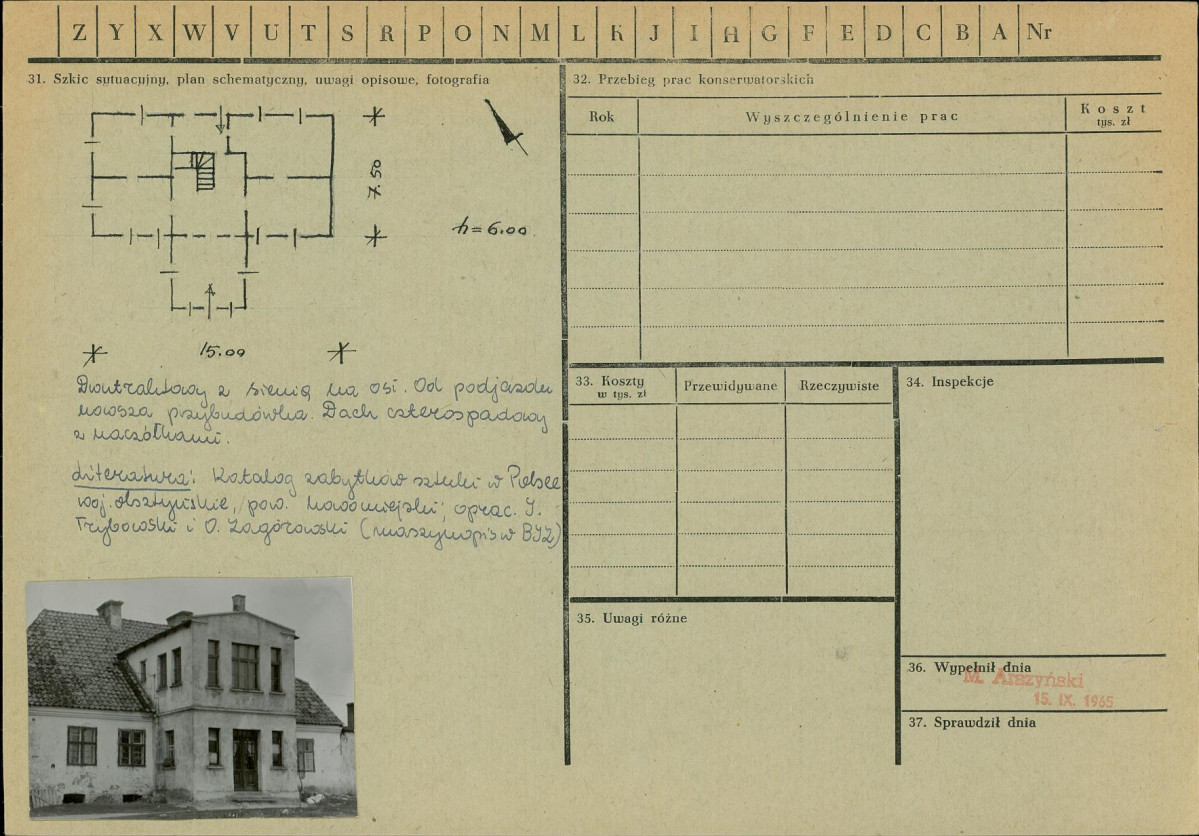 Z Y X W V U T S R P O N M L K J I H G F E D C B A Nr
31. Szkic sytuacyjny, plan schematyczny, uwagi opisowe, fotografia
7.50
h = 6.00
15.00
Dwutraktowy z sienią na osi. Od podjazdu
nowsza przybudówka. Dach czterospadowy
z naczółkami.
Literatura: Katalog zabytków sztuki w Polsce
woj. olsztyńskie, pow. nowomiejski, oprac. J.
Trybowski i O. Zagórowski (maszynopis w BJZ)
32. Przebieg prac konserwatorskich
Rok Wyszczególnienie prac Koszt
tys. zł
33. Koszty Przewidywane Rzeczywiste
w tys. zł
34. Inspekcje
35. Uwagi różne
36. Wypełnił dnia
M. Arszyński
15. IX. 1965
37. Sprawdził dnia